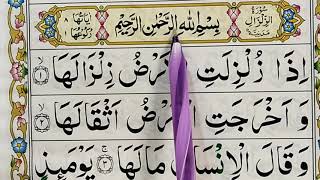 سُوْرَةُ الزِّلْزَالِ مَدَنِيَّةٌ
بِسْمِ اللّٰهِ الرَّحْمٰنِ الرَّحِيْمِ
اٰيَاتُهَا ٨ رُكُوْعُهَا ١
اِذَا زُلْزِلَتِ الْاَرْضُ زِلْزَالَهَا ١
وَ اَخْرَجَتِ الْاَرْضُ اَثْقَالَهَا ٢
وَقَالَ الْاِنْسَانُ مَالَهَا ٣ يَوْمَئِذٍ